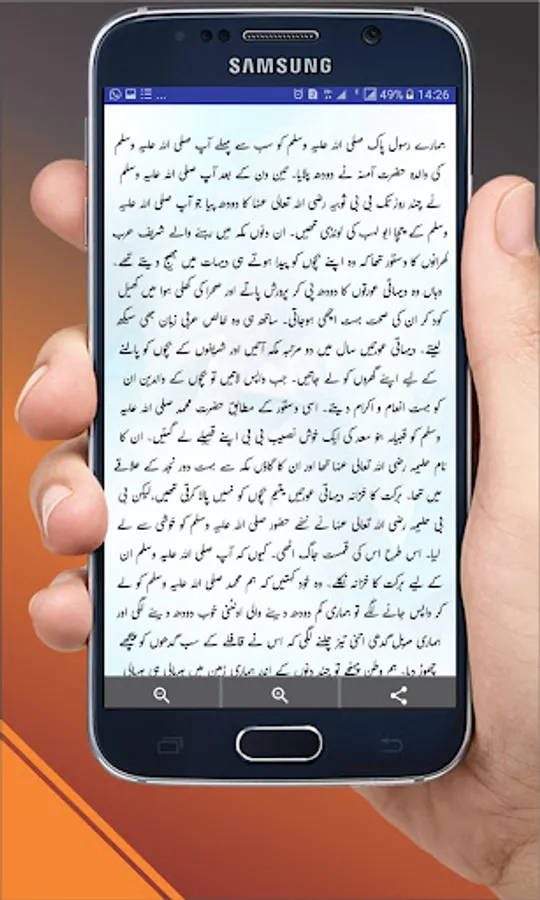 SAMSUNG
49% 14:26
ہمارے رسول پاک صلی اللہ علیہ وسلم کو سب سے پہلے آپ صلی اللہ علیہ وسلم
کی والدہ حضرت آمنہ نے دودھ پلایا۔ تین دن کے بعد آپ صلی اللہ علیہ وسلم
نے چند روز تک بی بی ثوبیہ رضی اللہ تعالی عنہا کا دودھ پیا جو آپ صلی اللہ علیہ
وسلم کے چچا ابو لہب کی لونڈی تھیں۔ ان دنوں مکہ میں رہنے والے شریف عرب
گھرانوں کا دستور تھا کہ وہ اپنے بچوں کو پیدا ہوتے ہی دیہات میں بھیج دیتے تھے۔
وہاں وہ دیہاتی عورتوں کا دودھ پی کر پرورش پاتے اور صحرا کی کھلی ہوا میں کھیل
کود کر ان کی صحت بہت اچھی ہوجاتی۔ ساتھ ہی وہ خالص عربی زبان بھی سیکھ
لیتے۔ دیہاتی عورتیں سال میں دو مرتبہ مکہ آتیں اور شہیانوں کے بچوں کو پالنے
کے لیے اپنے گھروں کو لے جاتیں۔ جب واپس لاتیں تو بچوں کے والدین ان
کو بہت انعام و اکرام دیتے۔ اسی دستور کے مطابق حضرت محمد صلی اللہ علیہ
وسلم کو قبیلہ بنو سعد کی ایک خوش نصیب بی بی اپنے قبیلے لے گئیں۔ ان کا
نام حلیمہ رضی اللہ تعالی عنہا تھا اور ان کا گاؤں مکہ سے بہت دور نجد کے علاقے
میں تھا۔ برکت کا خزانہ دیہاتی عورتیں یتیم بچوں کو نہیں پالا کرتی تھیں،لیکن بی
بی حلیمہ رضی اللہ تعالی عنہا نے ننھے حضور صلی اللہ علیہ وسلم کو خوشی سے لے
لیا۔ اس طرح اس کی قسمت جاگ اٹھی۔ کیوں کہ آپ صلی اللہ علیہ وسلم ان
کے لیے برکت کا خزانہ نکلے۔ وہ خود کہتیں کہ ہم محمد صلی اللہ علیہ وسلم کو لے
کر واپس جانے لگے تو ہماری کم دودھ دینے والی اونٹنی خوب دودھ دینے لگی اور
ہماری مریل گدھی اتنی تیز چلنے لگی کہ اس نے قافلے کے سب گدھوں کو پیچھے
چھوڑ دیا۔ ہم وطن پہنچے تو چند دنوں کے اندر ہماری زمین میں ہریالی ہی ہریالی